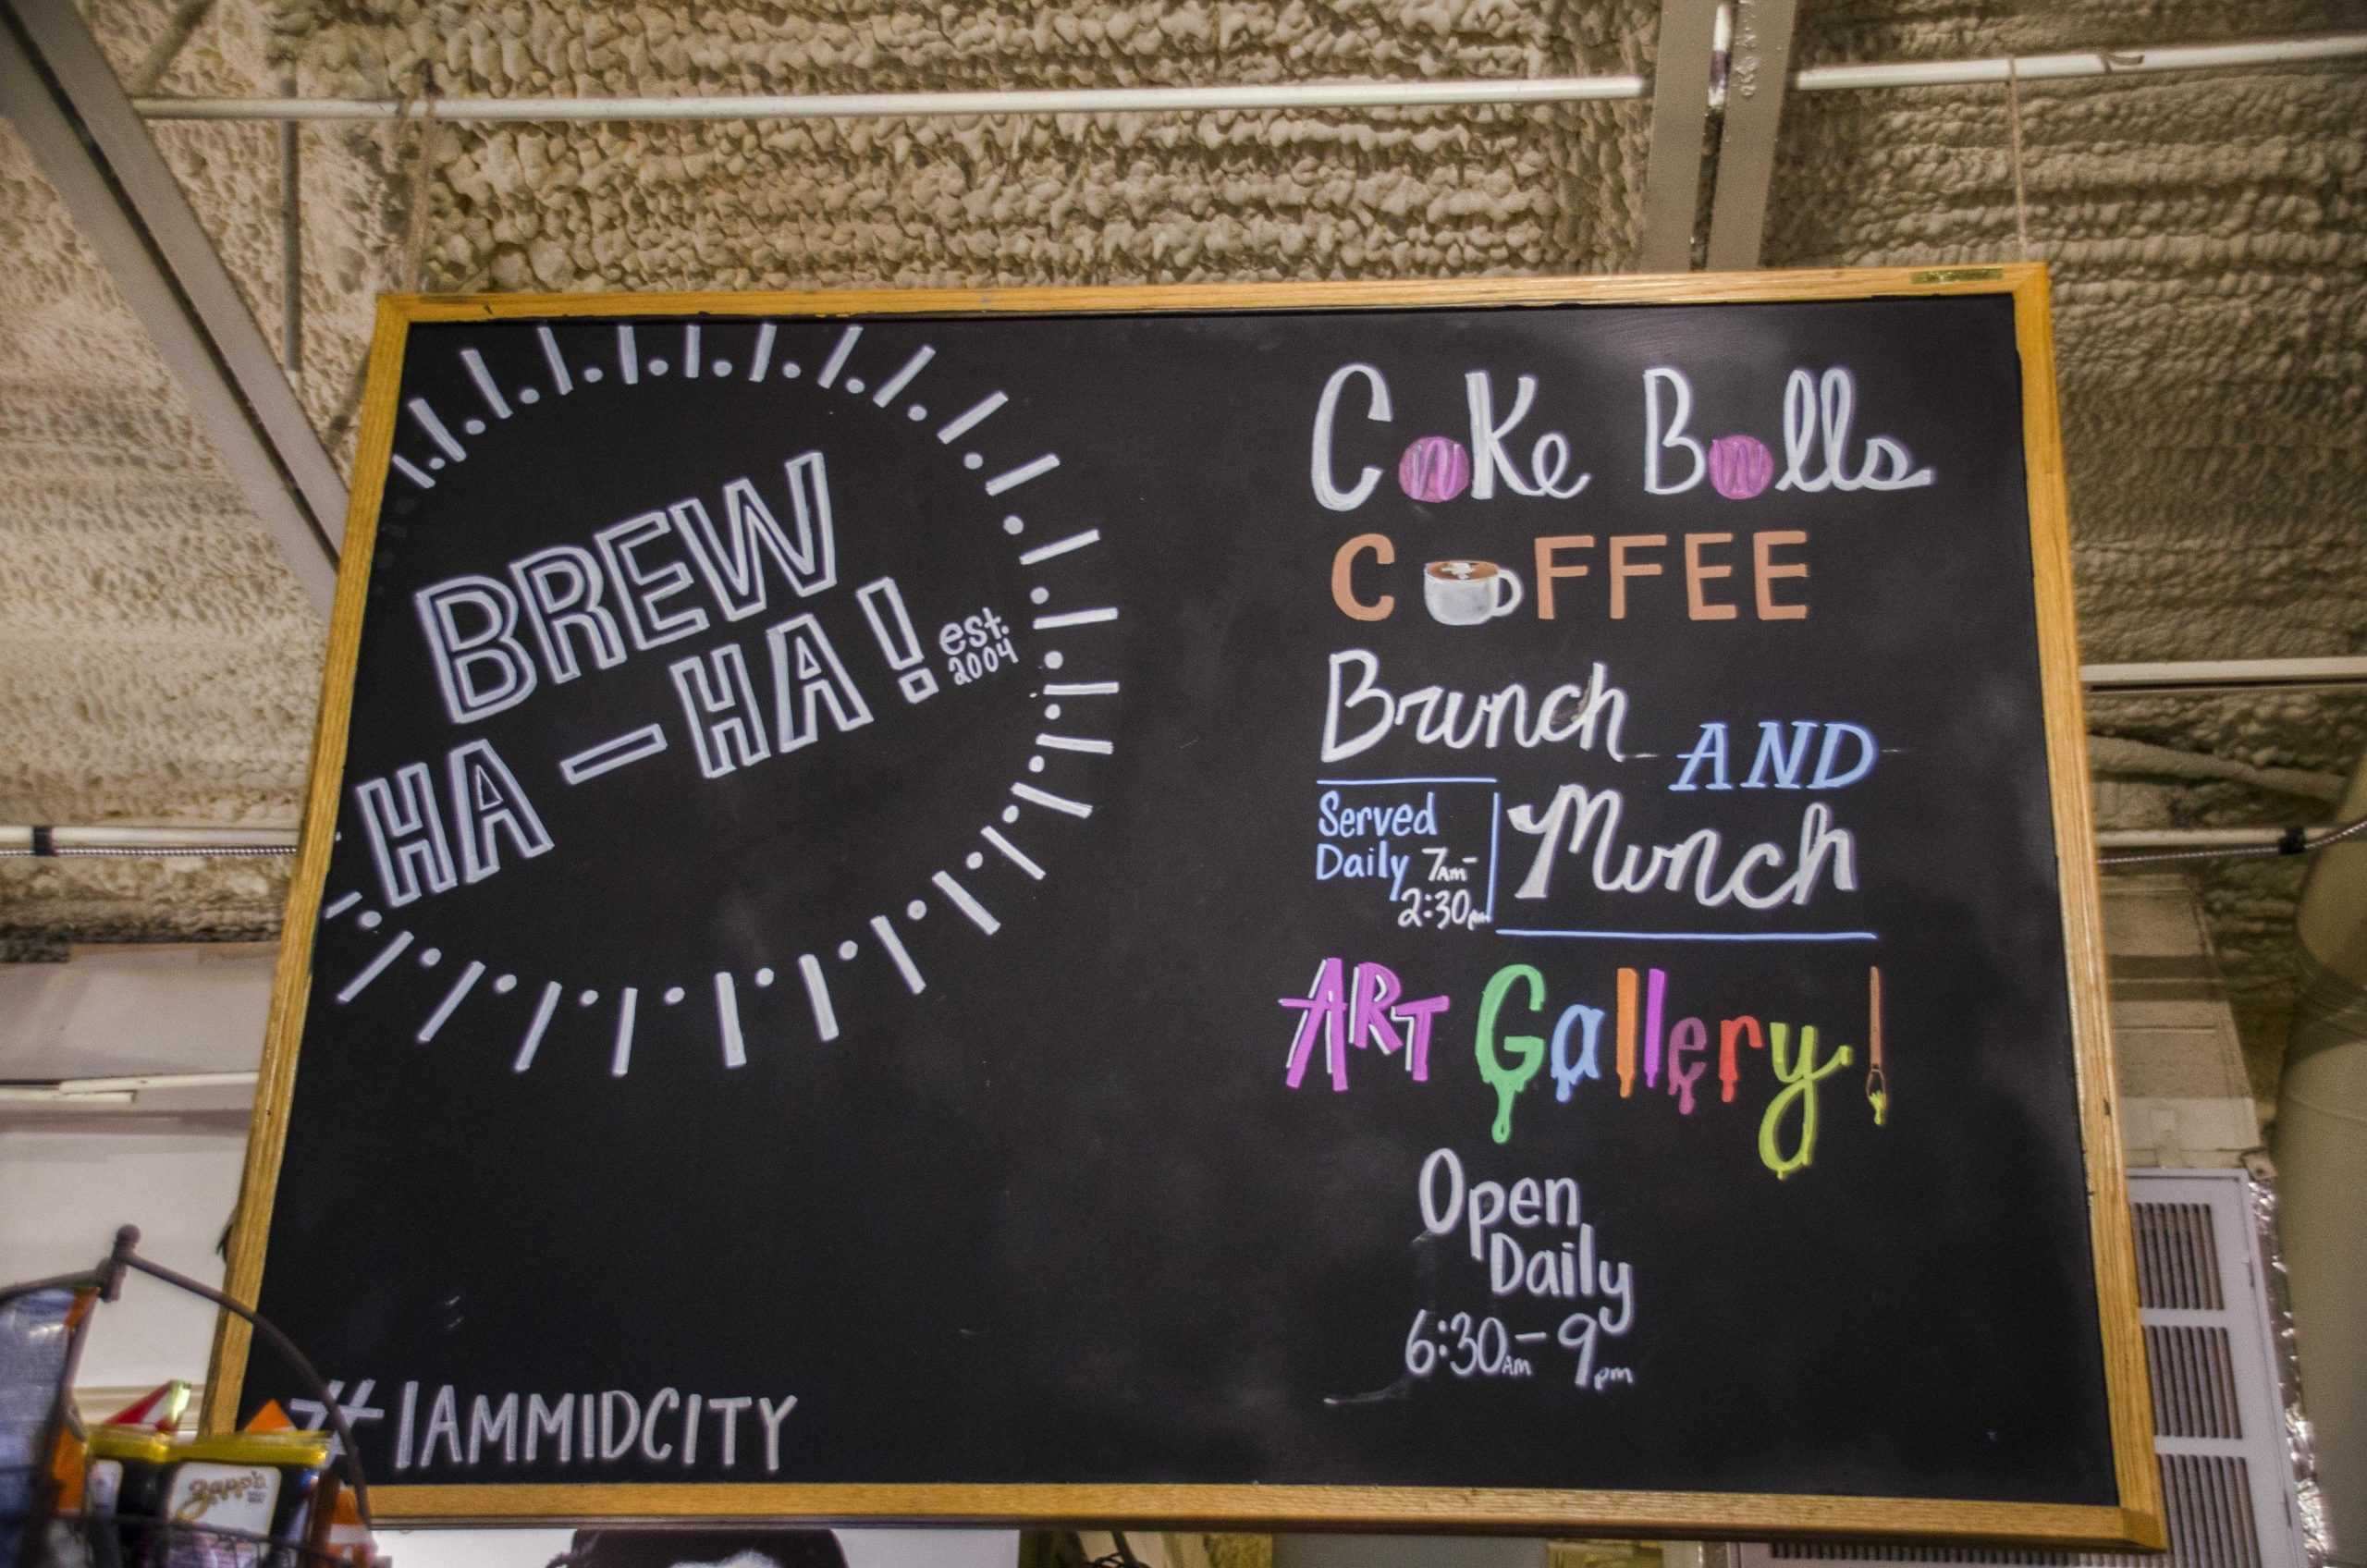 BREW
HA-HA!
est.
2004
#IAMMIDCITY
Cake Balls
COFFEE
Brunch AND
Munch
Served
Daily 7AM-
2:30pm
ART Gallery!
Open
Daily
6:30AM-9pm
Zapp's